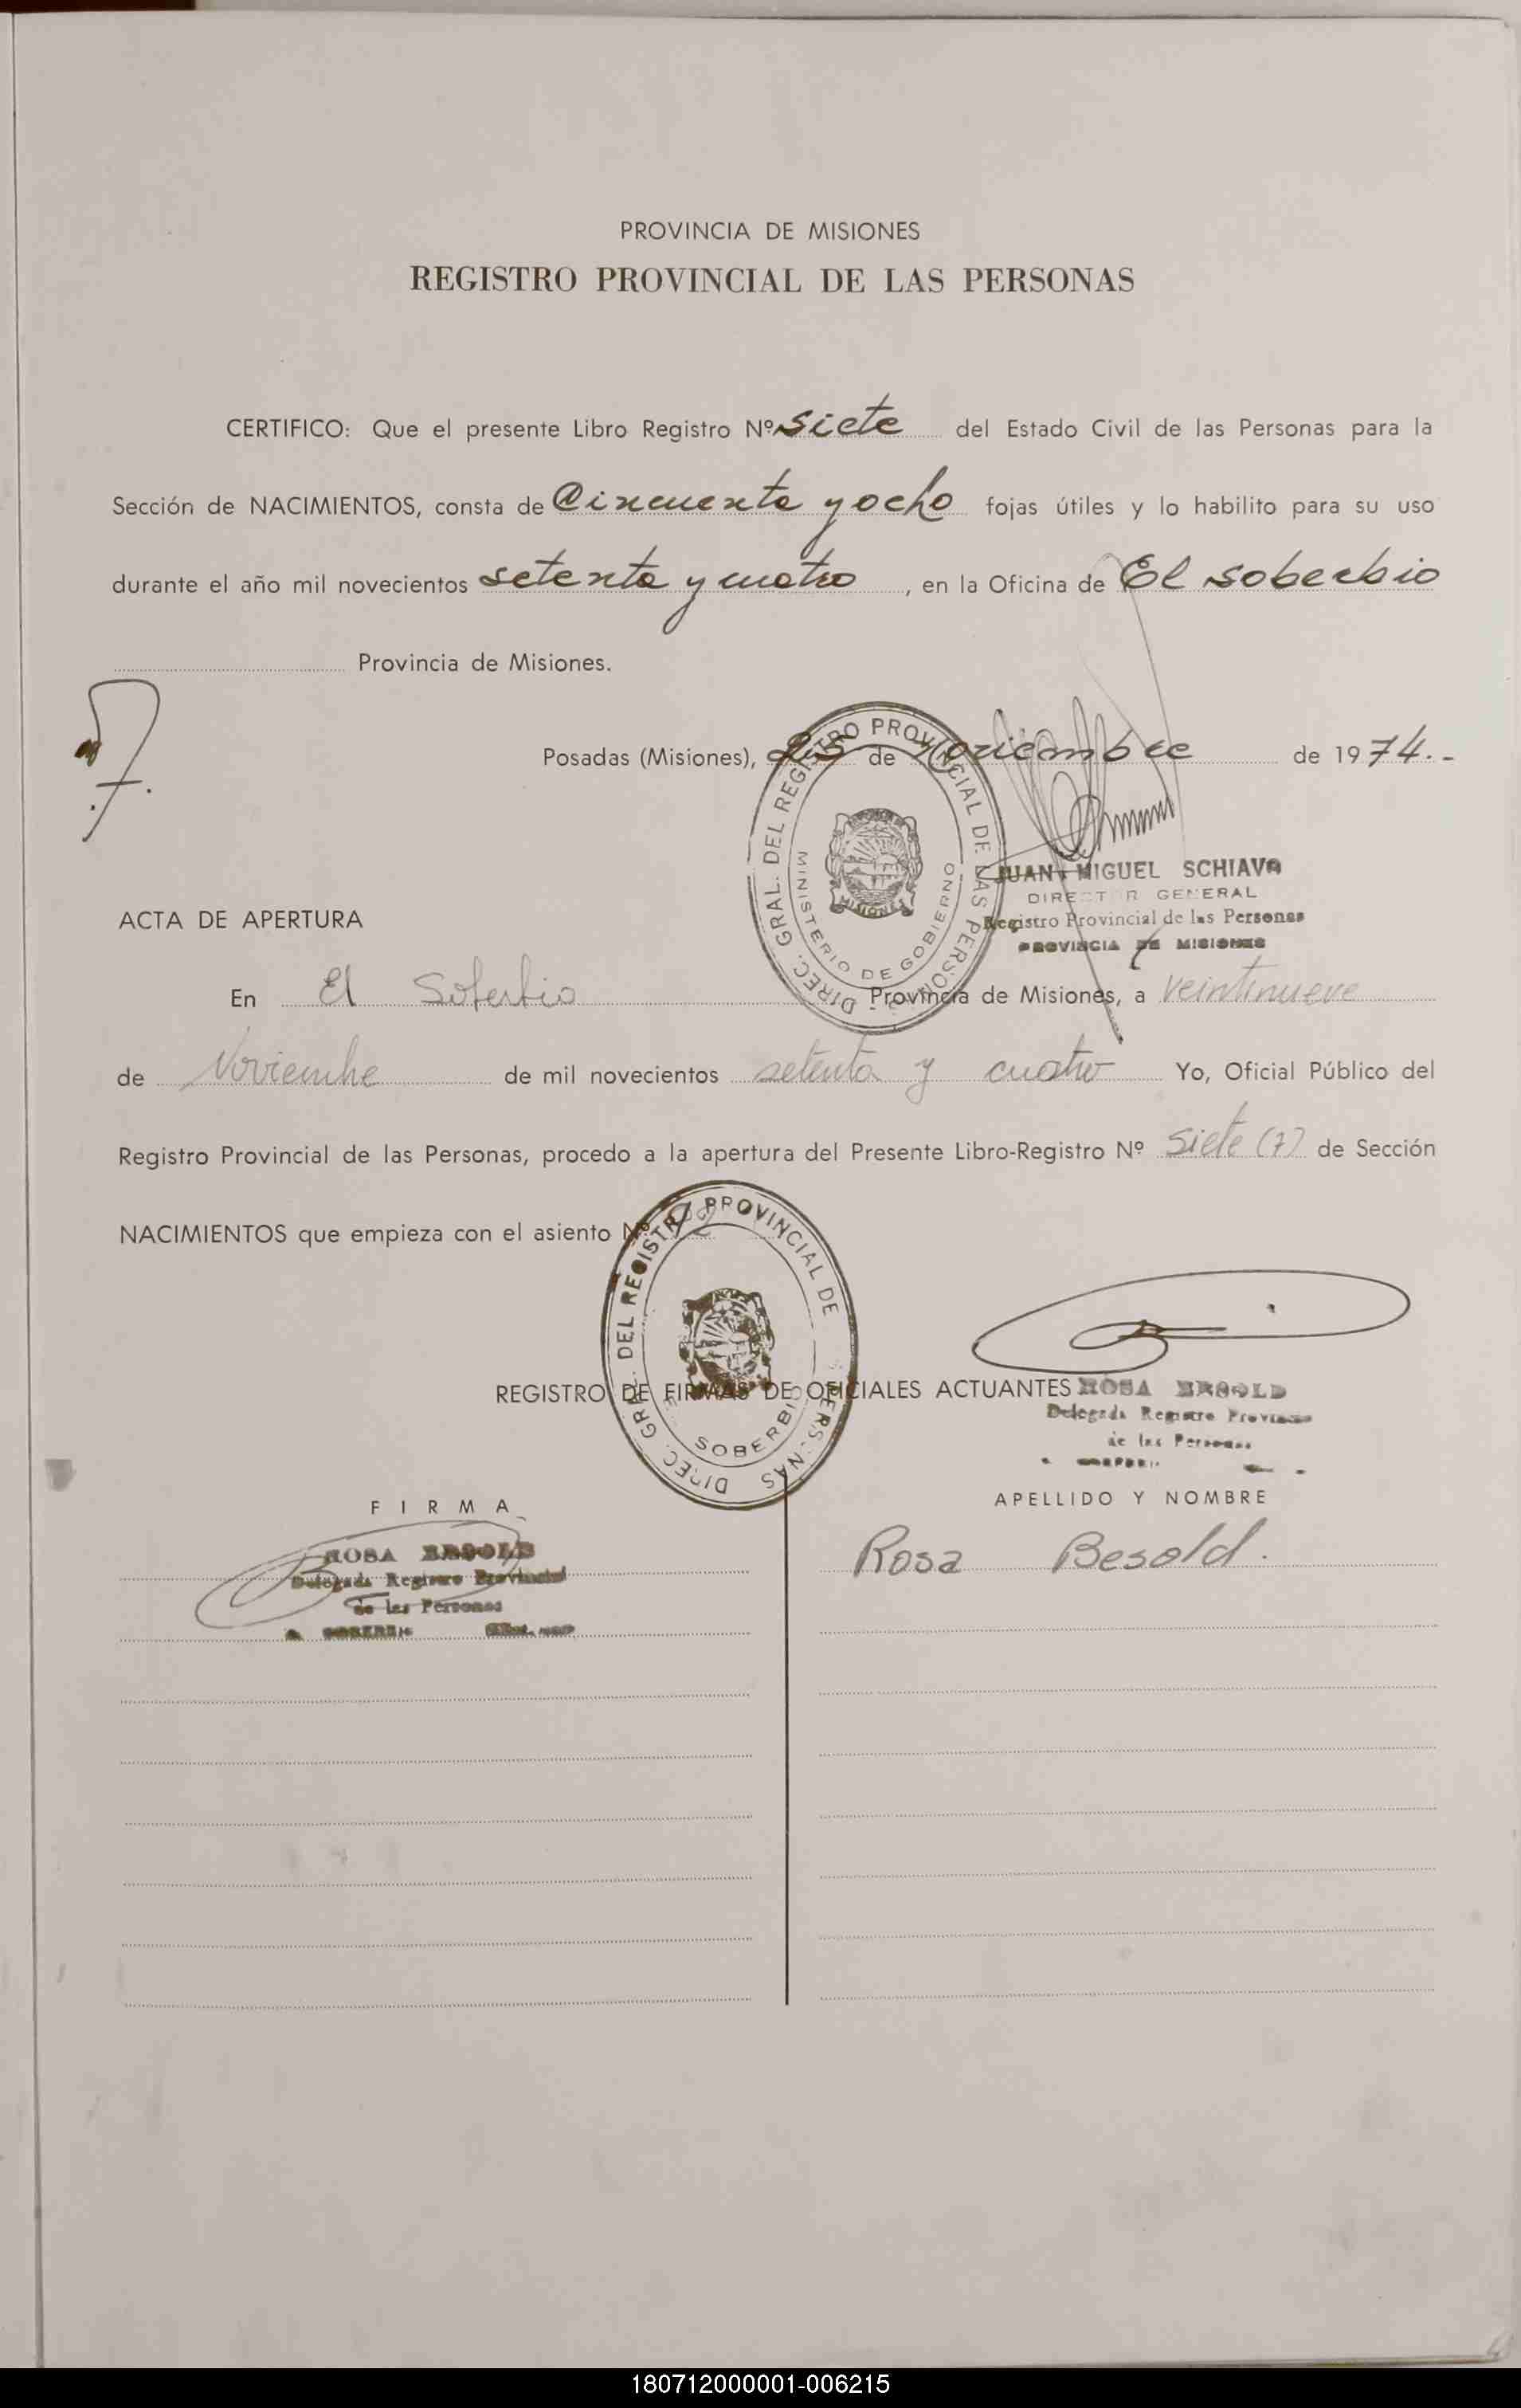 PROVINCIA DE MISIONES
REGISTRO PROVINCIAL DE LAS PERSONAS
CERTIFICO: Que el presente Libro Registro Nº siete del Estado Civil de las Personas para la
Sección de NACIMIENTOS, consta de Cincuenta y ocho fojas útiles y lo habilito para su uso
durante el año mil novecientos setenta y cuatro, en la Oficina de El soberbio
Provincia de Misiones.
Posadas (Misiones), 25 de Noviembre de 1974.-
DIREC. GRAL. DEL REGISTRO PROVINCIAL DE LAS PERSONAS
MINISTERIO DE GOBIERNO
MISIONES
JUAN MIGUEL SCHIAVO
DIRECTOR GENERAL
Registro Provincial de las Personas
PROVINCIA DE MISIONES
ACTA DE APERTURA
En El Soberbio Provincia de Misiones, a veintinueve
de Noviembre de mil novecientos setenta y cuatro Yo, Oficial Público del
Registro Provincial de las Personas, procedo a la apertura del Presente Libro-Registro Nº Siete (7) de Sección
NACIMIENTOS que empieza con el asiento Nº
DIREC. GRAL. DEL REGISTRO PROVINCIAL DE PERSONAS
SOBERBIO
REGISTRO DE FIRMAS DE OFICIALES ACTUANTES
ROSA BESOLD
Delegada Registro Provincial
de las Personas
FIRMA
APELLIDO Y NOMBRE
ROSA BESOLD
Delegada Registro Provincial
de las Personas
SOBERBIO
Rosa Besold.
180712000001-006215